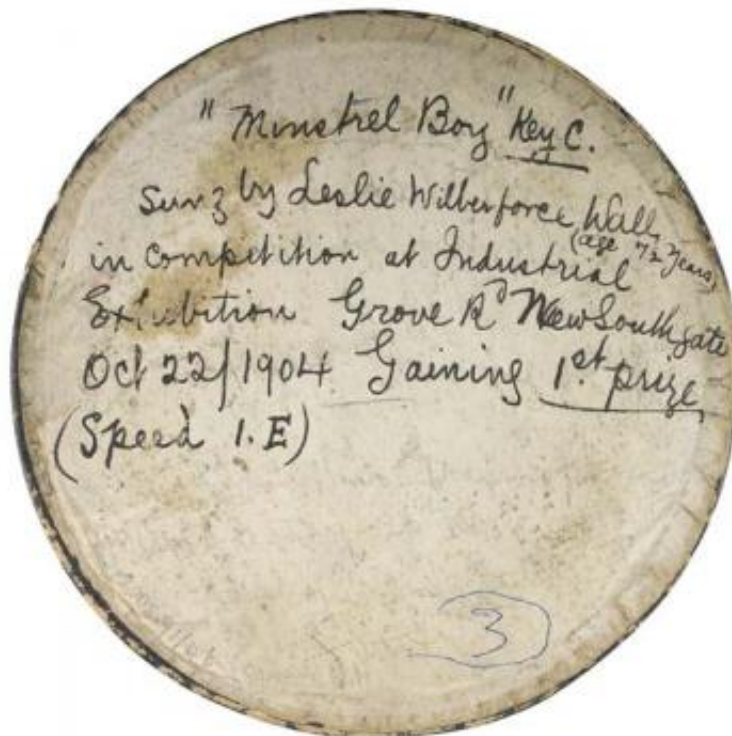 "Minstrel Boy" Key C.
Sung by Leslie Wilberforce Walls
(age 7½ years)
in competition at Industrial
Exhibition Grove Rd New Southgate
Oct 22/1904 Gaining 1st prize
(Speed 1.E)
3